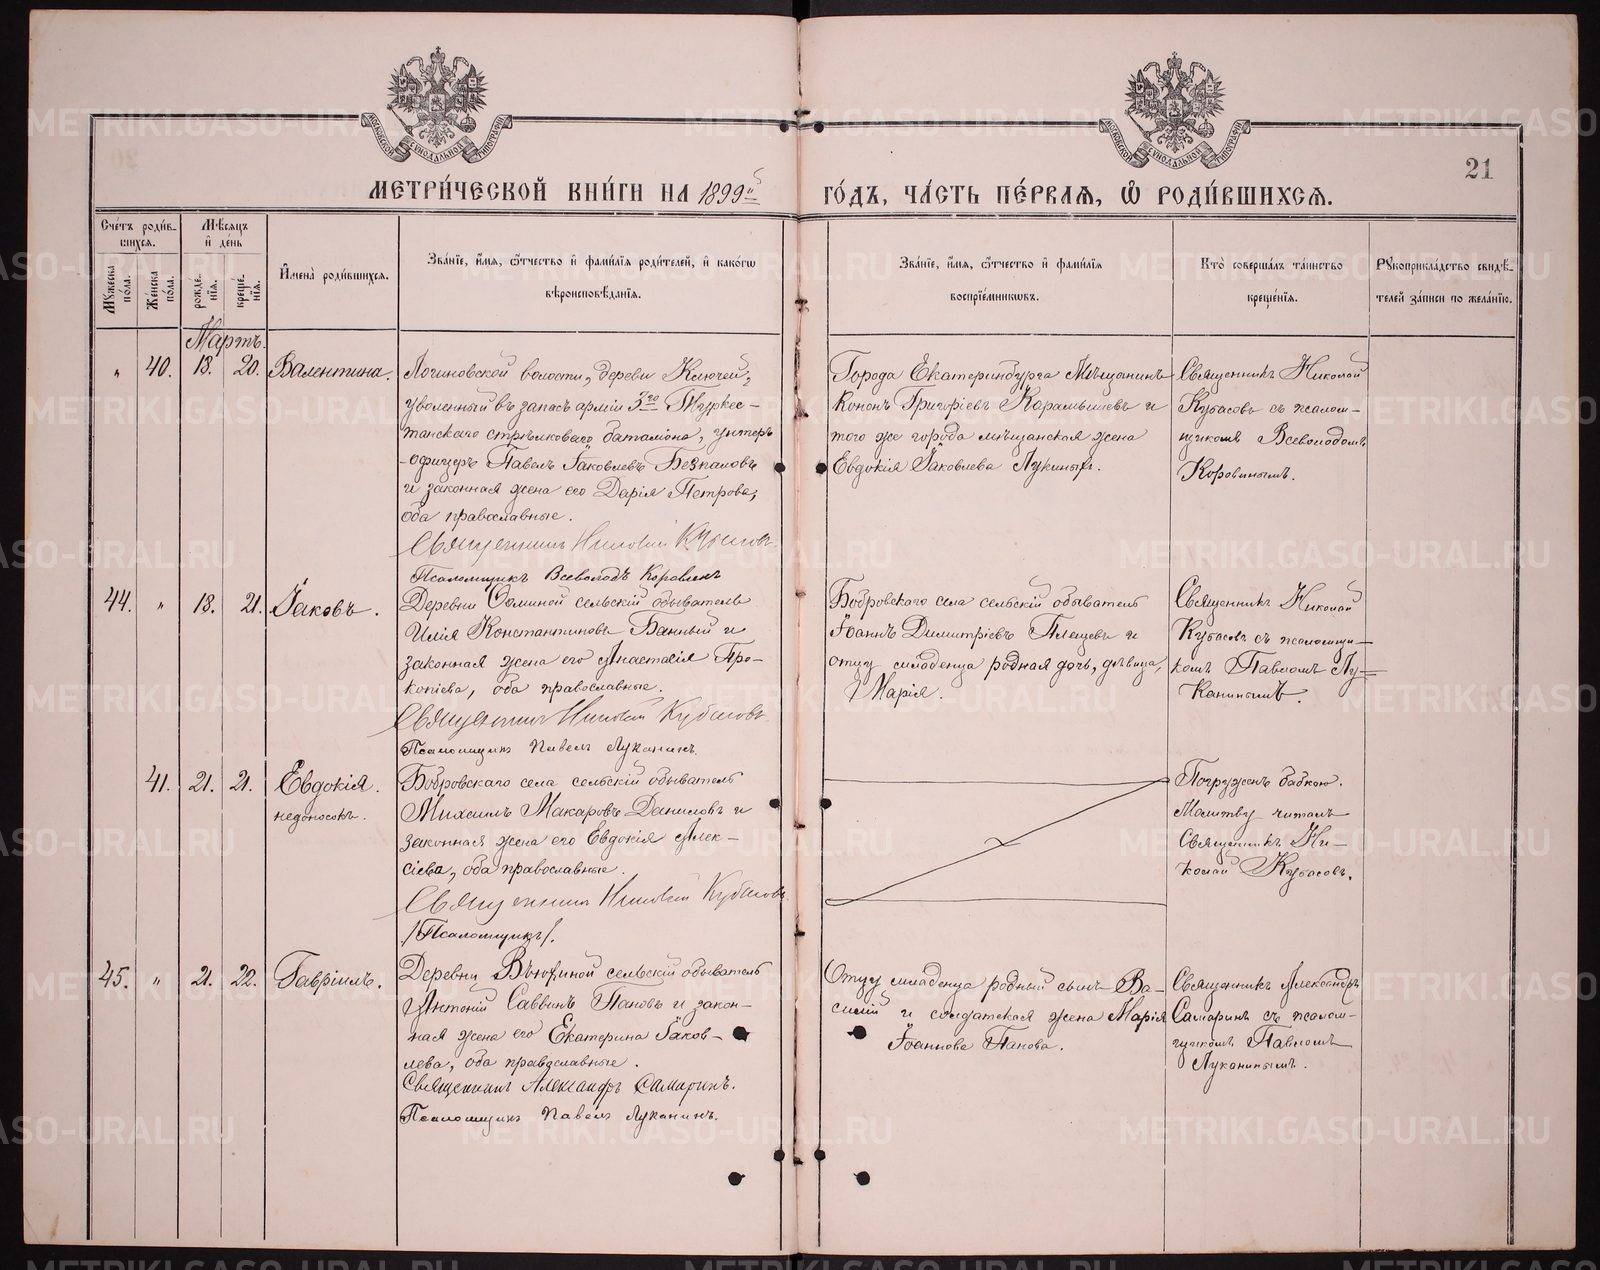 МОСКОВСКОЙ СУНОДАЛЬНОЙ ТИПОГРАФІИ
МОСКОВСКОЙ СУНОДАЛЬНОЙ ТИПОГРАФІИ
21
МЕТРИ́ЧЕСКОЙ КНИ́ГИ НА 1899й ГО́ДЪ, ЧА́СТЬ ПЕ́РВАѦ, Ѡ҆ РОДИ́ВШИХСѦ.
Сче́тъ роди́в-
шихсѧ.
Му́жеска по́ла.
Же́нска по́ла.
Мѣ́сѧцъ
и҆ де́нь
рожде́-нїѧ.
креще́-нїѧ.
И҆мена̀ роди́вшихсѧ.
Зва́нїе, и҆́мѧ, ѻ҆́тчество и҆ фами́лїѧ роди́телей, и҆ како́гѡ
вѣроисповѣ́данїѧ.
Зва́нїе, и҆́мѧ, ѻ҆́тчество и҆ фами́лїѧ
воспрїе́мникѡвъ.
Кто̀ соверша́лъ та́инство
креще́нїѧ.
Рꙋкоприкла́дство свидѣ́-
телей за́писи по жела́нїю.
Мартъ.
„ 40. 18. 20. Валентина.
Логиновской волости, дереви Ключей,
уволенный въ запасъ арміи 3го Туркес-
танскаго стрѣлковаго баталіона, унтеръ
-офицеръ Павелъ Іаковлевъ Безпаловъ
и законная жена его Дарія Петрова,
оба православные.
Священникъ Николай Кубасовъ
Псаломщикъ Всеволодъ Коровинъ
Города Екатеринбурга Мѣщанинъ
Кононъ Григоріевъ Карамышевъ и
того же города мѣщанская жена
Евдокія Іаковлева Лукиныхъ.
Священникъ Николай
Кубасовъ съ псалом-
щикомъ Всеволодомъ
Коровинымъ.
44. „ 18. 21. Іаковъ.
Деревни сельскій обыватель
Илія Константиновъ Банный и
законная жена его Анастасія Про-
копіева, оба православные.
Священникъ Николай Кубасовъ
Псаломщикъ Павелъ Луканинъ.
Бобровскаго села сельскій обыватель
Іоаннъ Димитріевъ Плещевъ и
отцу младенца родная дочь, дѣвица,
Марія.
Священникъ Николай
Кубасовъ съ псаломщи-
комъ Павломъ Лу-
канинымъ.
41. 21. 21. Евдокія.
недоносокъ.
Бобровскаго села сельскій обыватель
Михаилъ Макаровъ Даниловъ и
законная жена его Евдокія Алек-
сіева, оба православные.
Священникъ Николай Кубасовъ
/Псаломщикъ/.
Погруженъ бабкою.
Молитву читалъ
Священникъ Ни-
колай Кубасовъ.
45. „ 21. 22. Гавріилъ.
Деревни Вьюхиной сельскій обыватель
Антоній Саввинъ Пановъ и закон-
ная жена его Екатерина Іаков-
лева, оба православные.
Священникъ Александръ Самаринъ.
Псаломщикъ Павелъ Луканинъ.
Отцу младенца родный сынъ Ва-
силій и солдатская жена Марія
Іоаннова Панова.
Священникъ Александръ
Самаринъ съ псалом-
щикомъ Павломъ
Луканинымъ.
METRIKI.GASO-URAL.RU